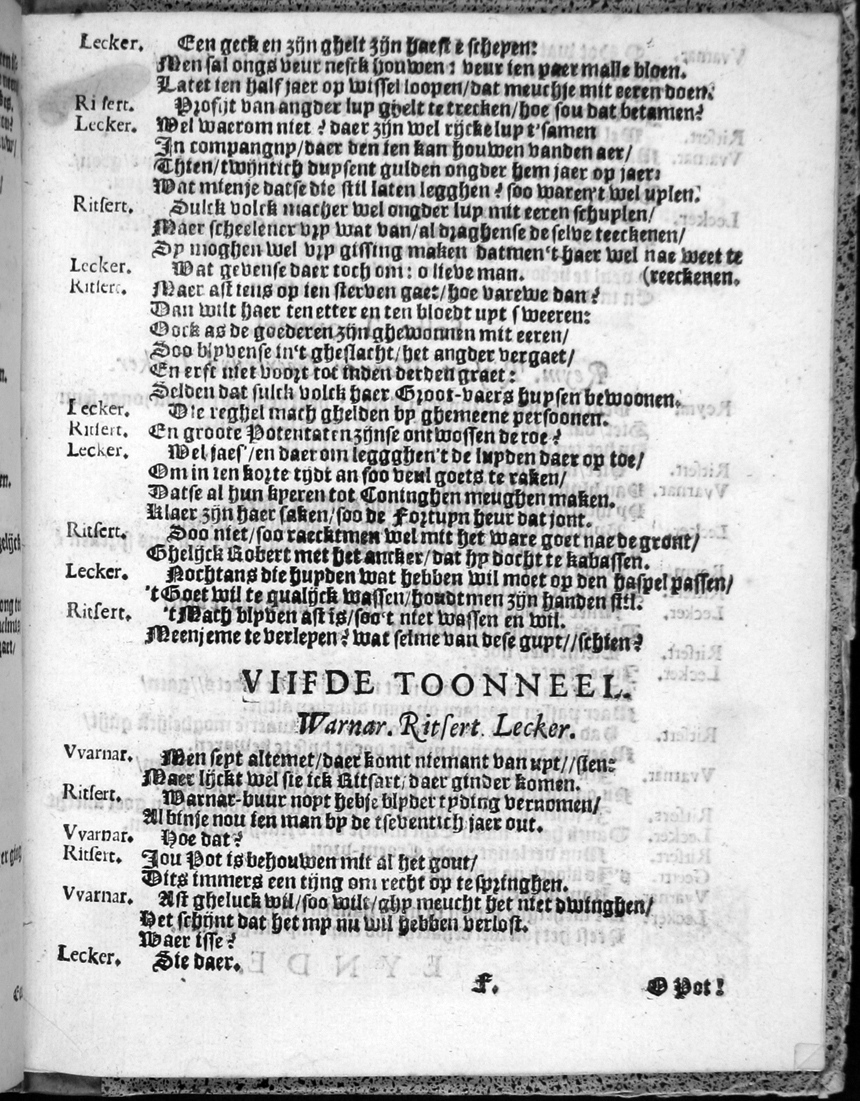 Lecker. Een geck en zijn ghelt zijn haest e schepen:
Men sal ongs veur nesck houwen: veur ien paer malle bloen.
Latet ien half jaer op wissel loopen/dat meuchje mit eeren doen.
Ritsert. Profijt van angder luy ghelt te trecken/hoe sou dat betamen?
Lecker. Wel waerom niet? daer zijn wel rijcke luy t'samen
In compangny/daer den ien kan houwen vanden aer/
Thien/twijntich duysent gulden ongder hem jaer op jaer:
Wat mienje datse die stil laten legghen? soo waren't wel uylen.
Ritsert. Sulck volck macher wel ongder luy mit eeren schuylen/
Maer scheelener vry wat van/al draghense de selve teeckenen/
Sy moghen wel vry gissing maken datmen't haer wel nae weet te
Lecker. Wat gevense daer toch om: o lieve man. (reeckenen.
Ritsert. Maer ast iens op ien sterven gaet/hoe varewe dan?
Dan wilt haer ten etter en ten bloedt uyt sweeren:
Oock as de goederen zijn ghewonnen mit eeren/
Soo blyvense in't gheslacht/het angder vergaet/
En erft niet voort tot inden derden graet:
Selden dat sulck volck haer Groot-vaers huysen bewoonen.
Lecker. Die reghel mach ghelden by ghemeene persoonen.
Ritsert. En groote Potentaten zijnse ontwossen de roe?
Lecker. Wel jaes'/en daerom leggghen't de luyden daer op toe/
Om in ien korte tydt an soo veul goets te raken/
Datse al hun kyeren tot Coninghen meughen maken.
Klaer zijn haer saken/soo de Fortuyn heur dat jont.
Ritsert. Soo niet/soo raecktmen wel mit het ware goet nae de gront/
Ghelijck Robert met het ancker/dat hy docht te kabassen.
Lecker. Nochtans die huyden wat hebben wil moet op den haspel passen/
't Goet wil te qualijck wassen/houdtmen zijn handen stil.
Ritsert. 't Mach blyven ast is/soo't niet wassen en wil.
Meenje me te verlepen? wat selme van dese guyt//schien?
VIIFDE TOONNEEL.
Warnar. Ritsert. Lecker.
Vvarnar. Men seyt altemet/daer komt niemant van uyt//sien:
Maer lijckt wel sie ick Ritsart/daer ginder komen.
Ritsert. Warnar-buur noyt hebje blyder tyding vernomen/
Al binje nou ien man by de tseventich jaer out.
Vvarnar. Hoe dat?
Ritsert. Jou Pot is behouwen mit al het gout/
Dits immers een tijng om recht op te springhen.
Vvarnar. Ast gheluck wil/soo wilt/ghy meucht het niet dwinghen/
Het schijnt dat het my nu wil hebben verlost.
Waer isse?
Lecker. Sie daer.
F. O Pot!